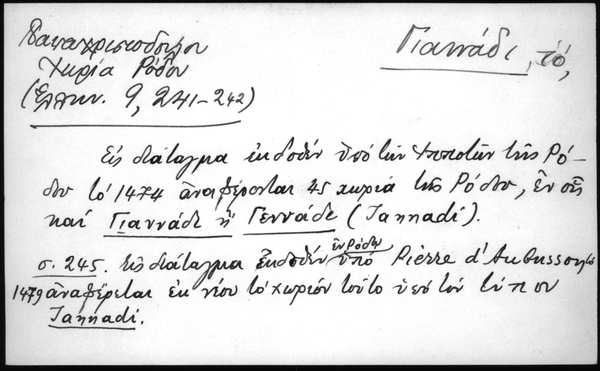 Παπαχριστοδούλου
Χωριά Ρόδου
(Ἑλλην. 9, 241-242)
Γιαννάδι, τό,
Εἰς διάταγμα ἐκδοθέν ὑπό τῶν ἱπποτῶν τῆς Ρό-
δου τό 1474 ἀναφέρονται 45 χωριά τῆς Ρόδου, ἐν οἷς
καί Γιαννάδι ἤ Γεννάδι (Jannadi).
σ. 245. Εἰς διάταγμα ἐκδοθέν ἐν Ρόδῳ ὑπό Pierre d'Aubusson τό
1479 ἀναφέρεται ἐκ νέου τό χωριόν τοῦτο ὑπό τόν τύπον
Jannadi.